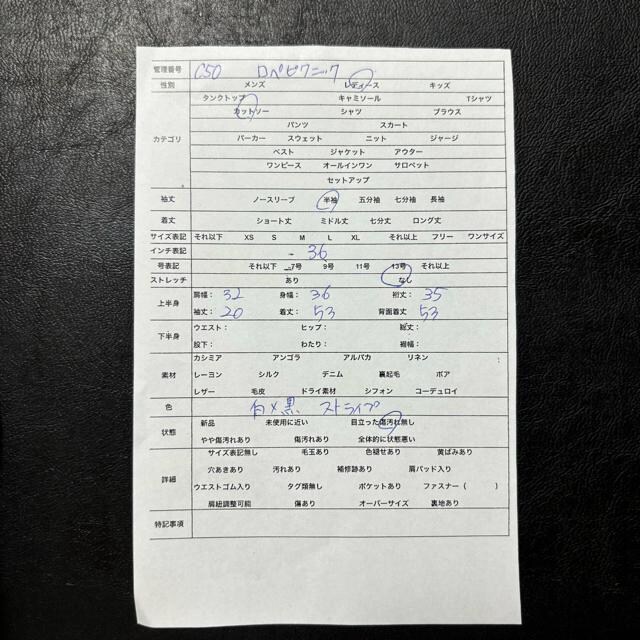 管理番号 C50 ロペピクニック
性別 メンズ レディース キッズ
タンクトップ キャミソール Tシャツ
カットソー シャツ ブラウス
パンツ スカート
カテゴリ パーカー スウェット ニット ジャージ
ベスト ジャケット アウター
ワンピース オールインワン サロペット
セットアップ
袖丈 ノースリーブ 半袖 五分袖 七分袖 長袖
着丈 ショート丈 ミドル丈 七分丈 ロング丈
サイズ表記 それ以下 XS S M L XL それ以上 フリー ワンサイズ
インチ表記 - 36
号表記 それ以下 7号 9号 11号 13号 それ以上
ストレッチ あり なし
上半身 肩幅: 32 身幅: 36 裄丈: 35
袖丈: 20 着丈: 53 背面着丈 53
下半身 ウエスト: ヒップ: 総丈:
股下: わたり: 裾幅:
カシミア アンゴラ アルパカ リネン
素材 レーヨン シルク デニム 裏起毛 ボア
レザー 毛皮 ドライ素材 シフォン コーデュロイ
色 白×黒 ストライプ
状態 新品 未使用に近い 目立った傷汚れ無し
やや傷汚れあり 傷汚れあり 全体的に状態悪い
サイズ表記無し 毛玉あり 色褪せあり 黄ばみあり
詳細 穴あきあり 汚れあり 補修跡あり 肩パッド入り
ウエストゴム入り タグ類無し ポケットあり ファスナー( )
肩紐調整可能 傷あり オーバーサイズ 裏地あり
特記事項